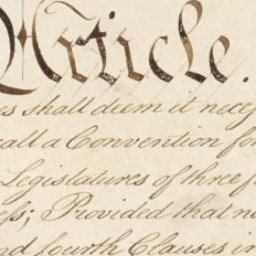 Article.
es shall deem it neces
call a Convention for
Legislatures of three f
ess; Provided that no
nd fourth Clauses in